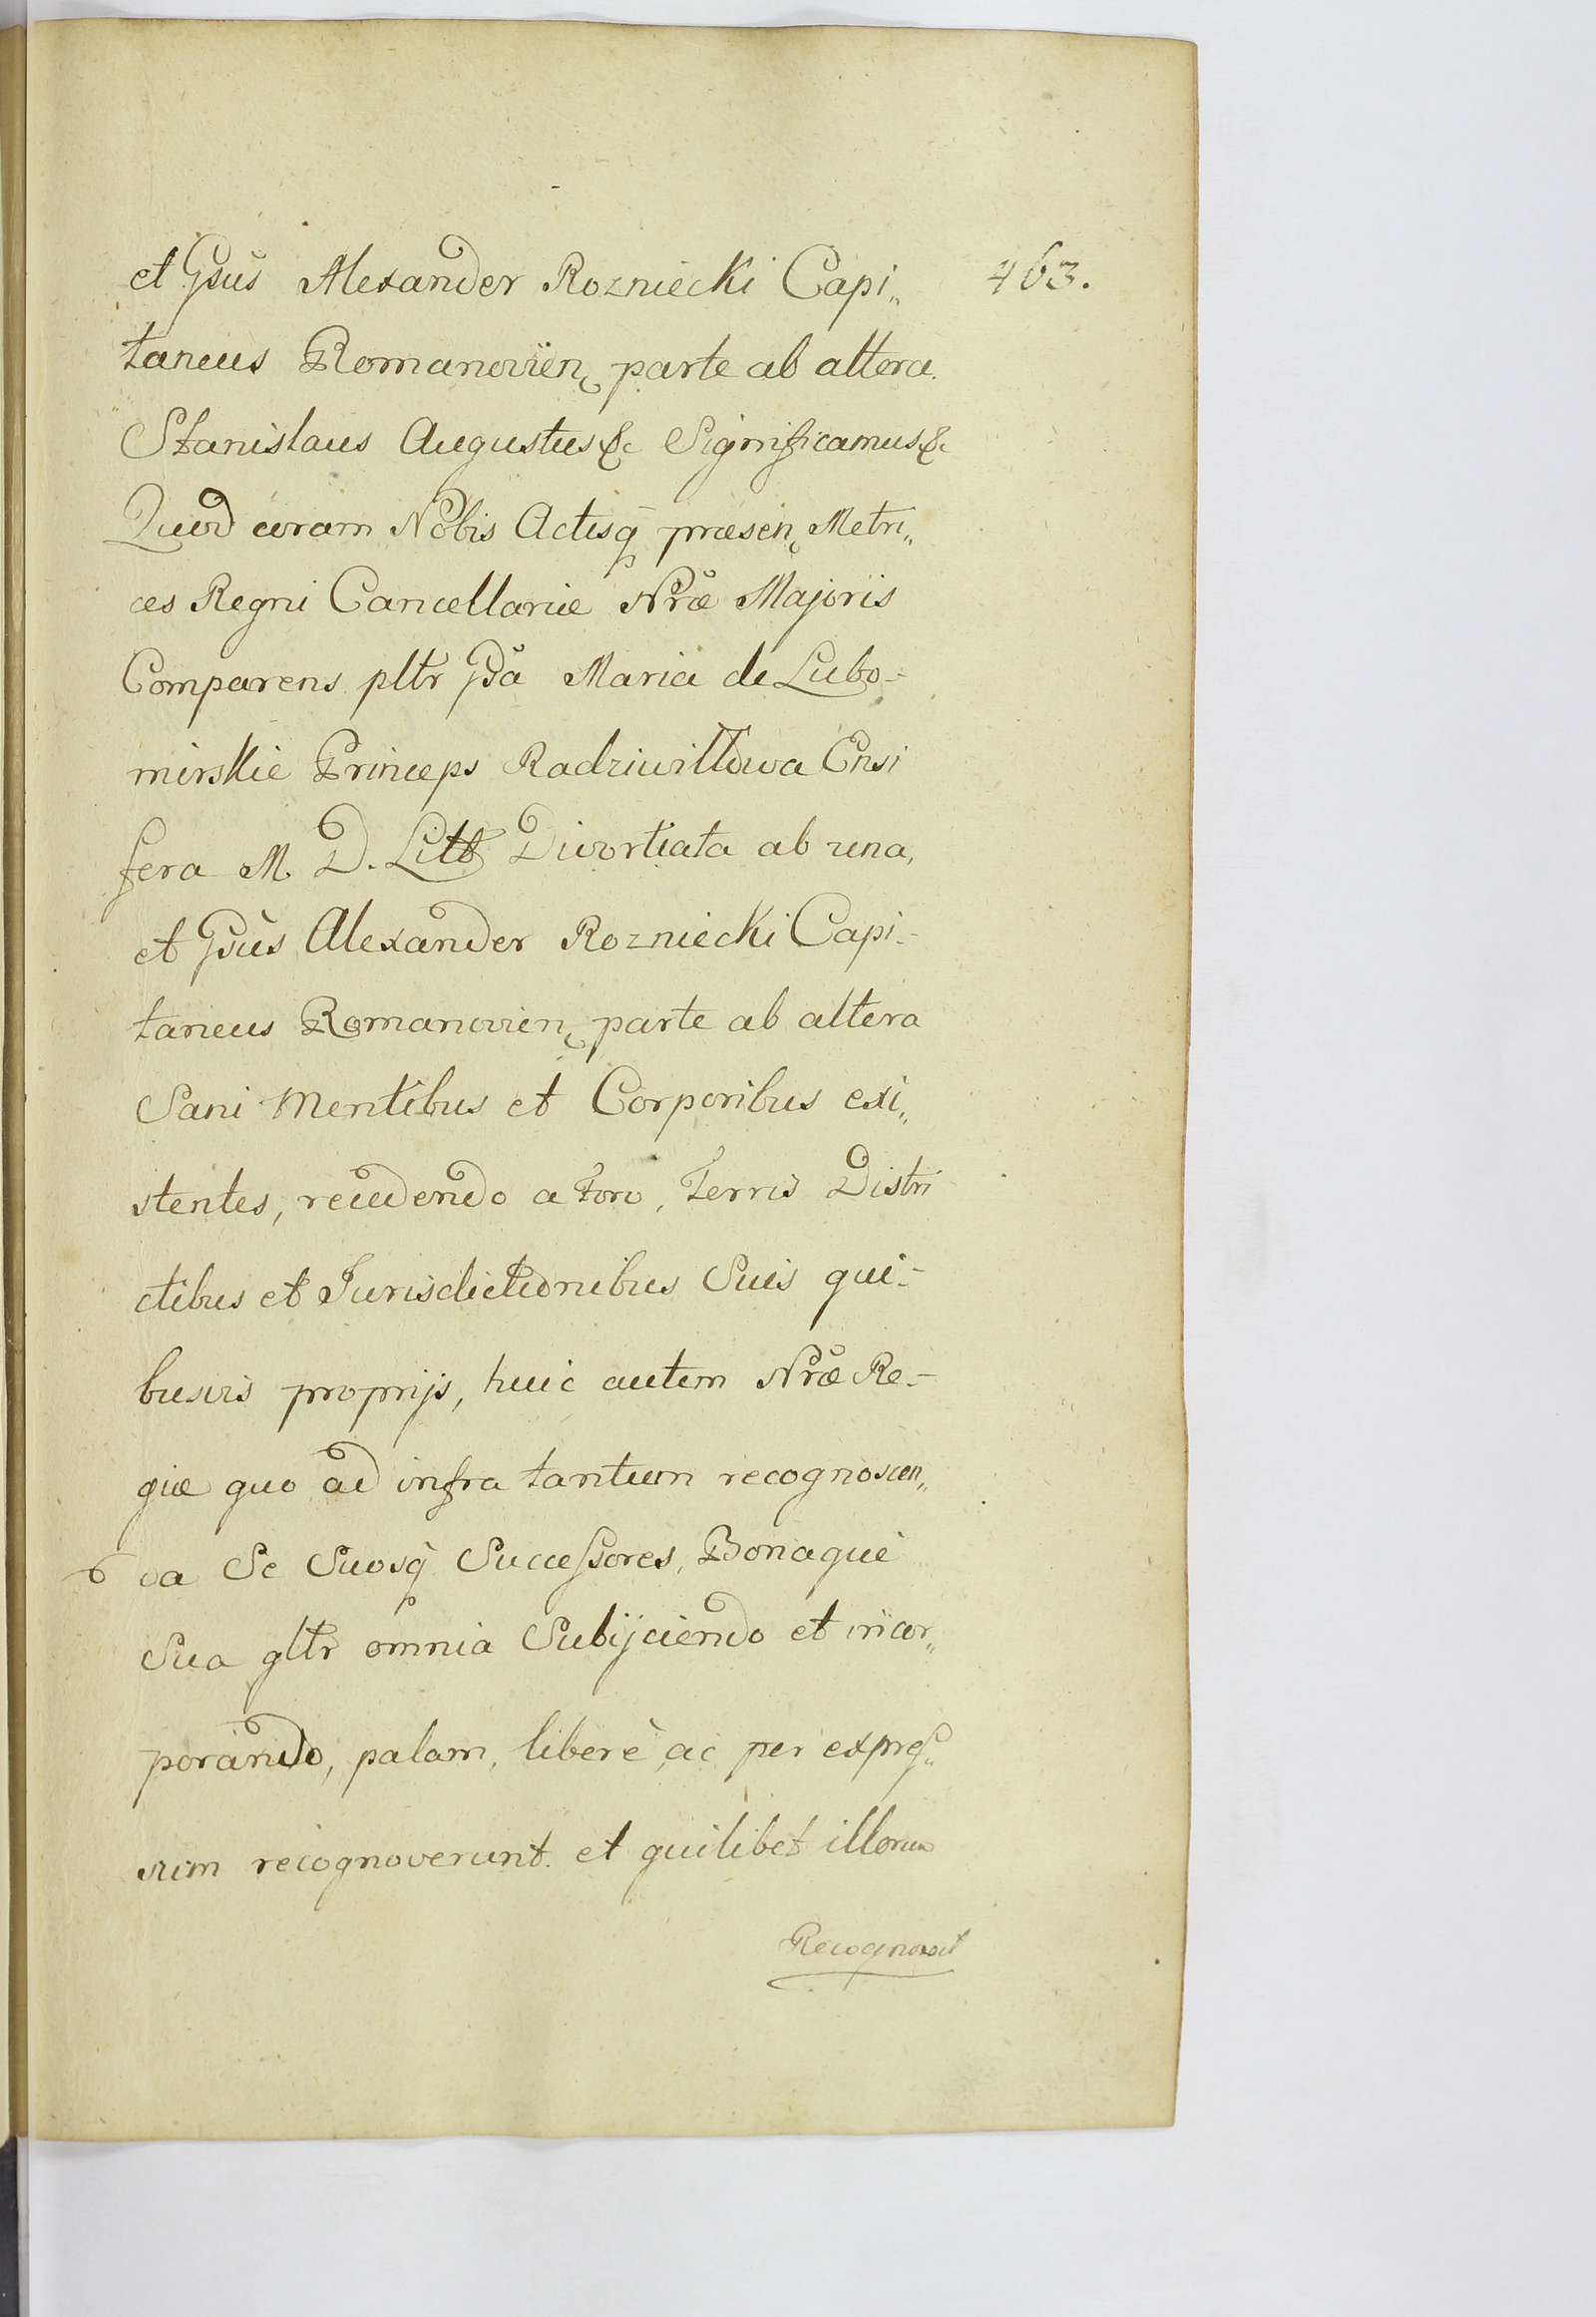 463.
et Gsus Alexander Rozniecki Capi„
taneus Romanovien parte ab altera.
Stanislaus Augustus &c Significamus &c
Quod coram Nobis Actisq præsen Metri„
ces Regni Cancellariæ Nræ Majoris
Comparens pltr Gsa Maria de Lubo-
mirskie Princeps Radziwiłłowa Ensi
fera M. D. Litt Divortiata ab una,
et Gsus Alexander Rozniecki Capi-
taneus Romanovien parte ab altera
Sani Mentibus et Corporibus exi„
stentes, recedendo a Foro, Terris Distri
ctibus et Jurisdictionibus Suis qui-
busvis proprijs, huic autem Nræ Re-
giæ quo ad infra tantum recognoscen„
da Se Suosq Successores, Bonaque
Sua gltr omnia Subijciendo et incor„
porando, palam, liberè, ac per expres„
sum recognoverunt. et quilibet illorum
Recognovit